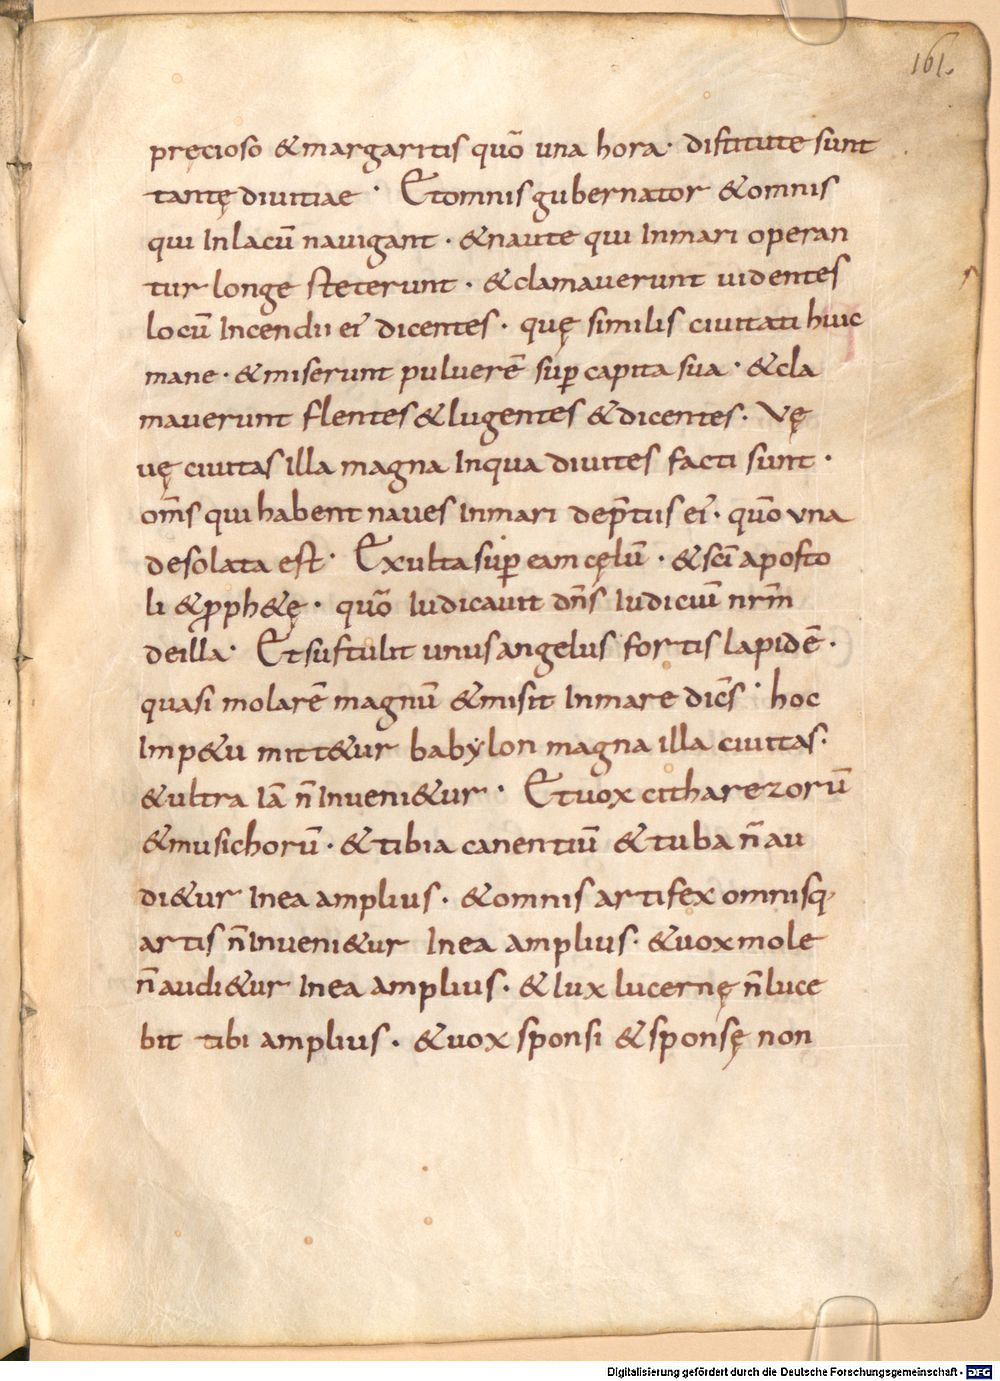 161.
pręcioso & margaritis quō una hora · distitute sunt
tantę divitiae · Et omnis gubernator & omnis
qui In lacū navigant · & naute qui In mari operan
tur longe steterunt · & clamaverunt videntes
locū Incendii ei' dicentes · quę similis civitati huic
mane · & miserunt pulverē sup capita sua · & cla
maverunt flentes & lugentes & dicentes · Vę
vę civitas illa magna In qua divites facti sunt ·
om̄s qui habent naves In mari dep̄tiis ei' · quō una
desolata est · Exulta sup eam cęlū · & sc̄i aposto
li & proph&ę · quō Iudicavit dn̄s Iudiciū nr̄m
de illa · Et sustulit unus angelus fortis lapidē ·
quasi molarē magnū & misit In mare dic̄s · hoc
Imp&u mitt&ur babylon magna illa civitas ·
& ultra Iā n̄ Inveni&ur · Et vox citharezorū
& musichorū · & tibia canentiū & tuba n̄ au
di&ur In ea amplius · & omnis artifex omnisq·
artis n̄ Inveni&ur In ea amplius · & vox mole
n̄ audi&ur In ea amplius · & lux lucernę n̄ luce
bit tibi amplius · & vox sponsi & sponsę non
Digitalisierung gefördert durch die Deutsche Forschungsgemeinschaft - DFG